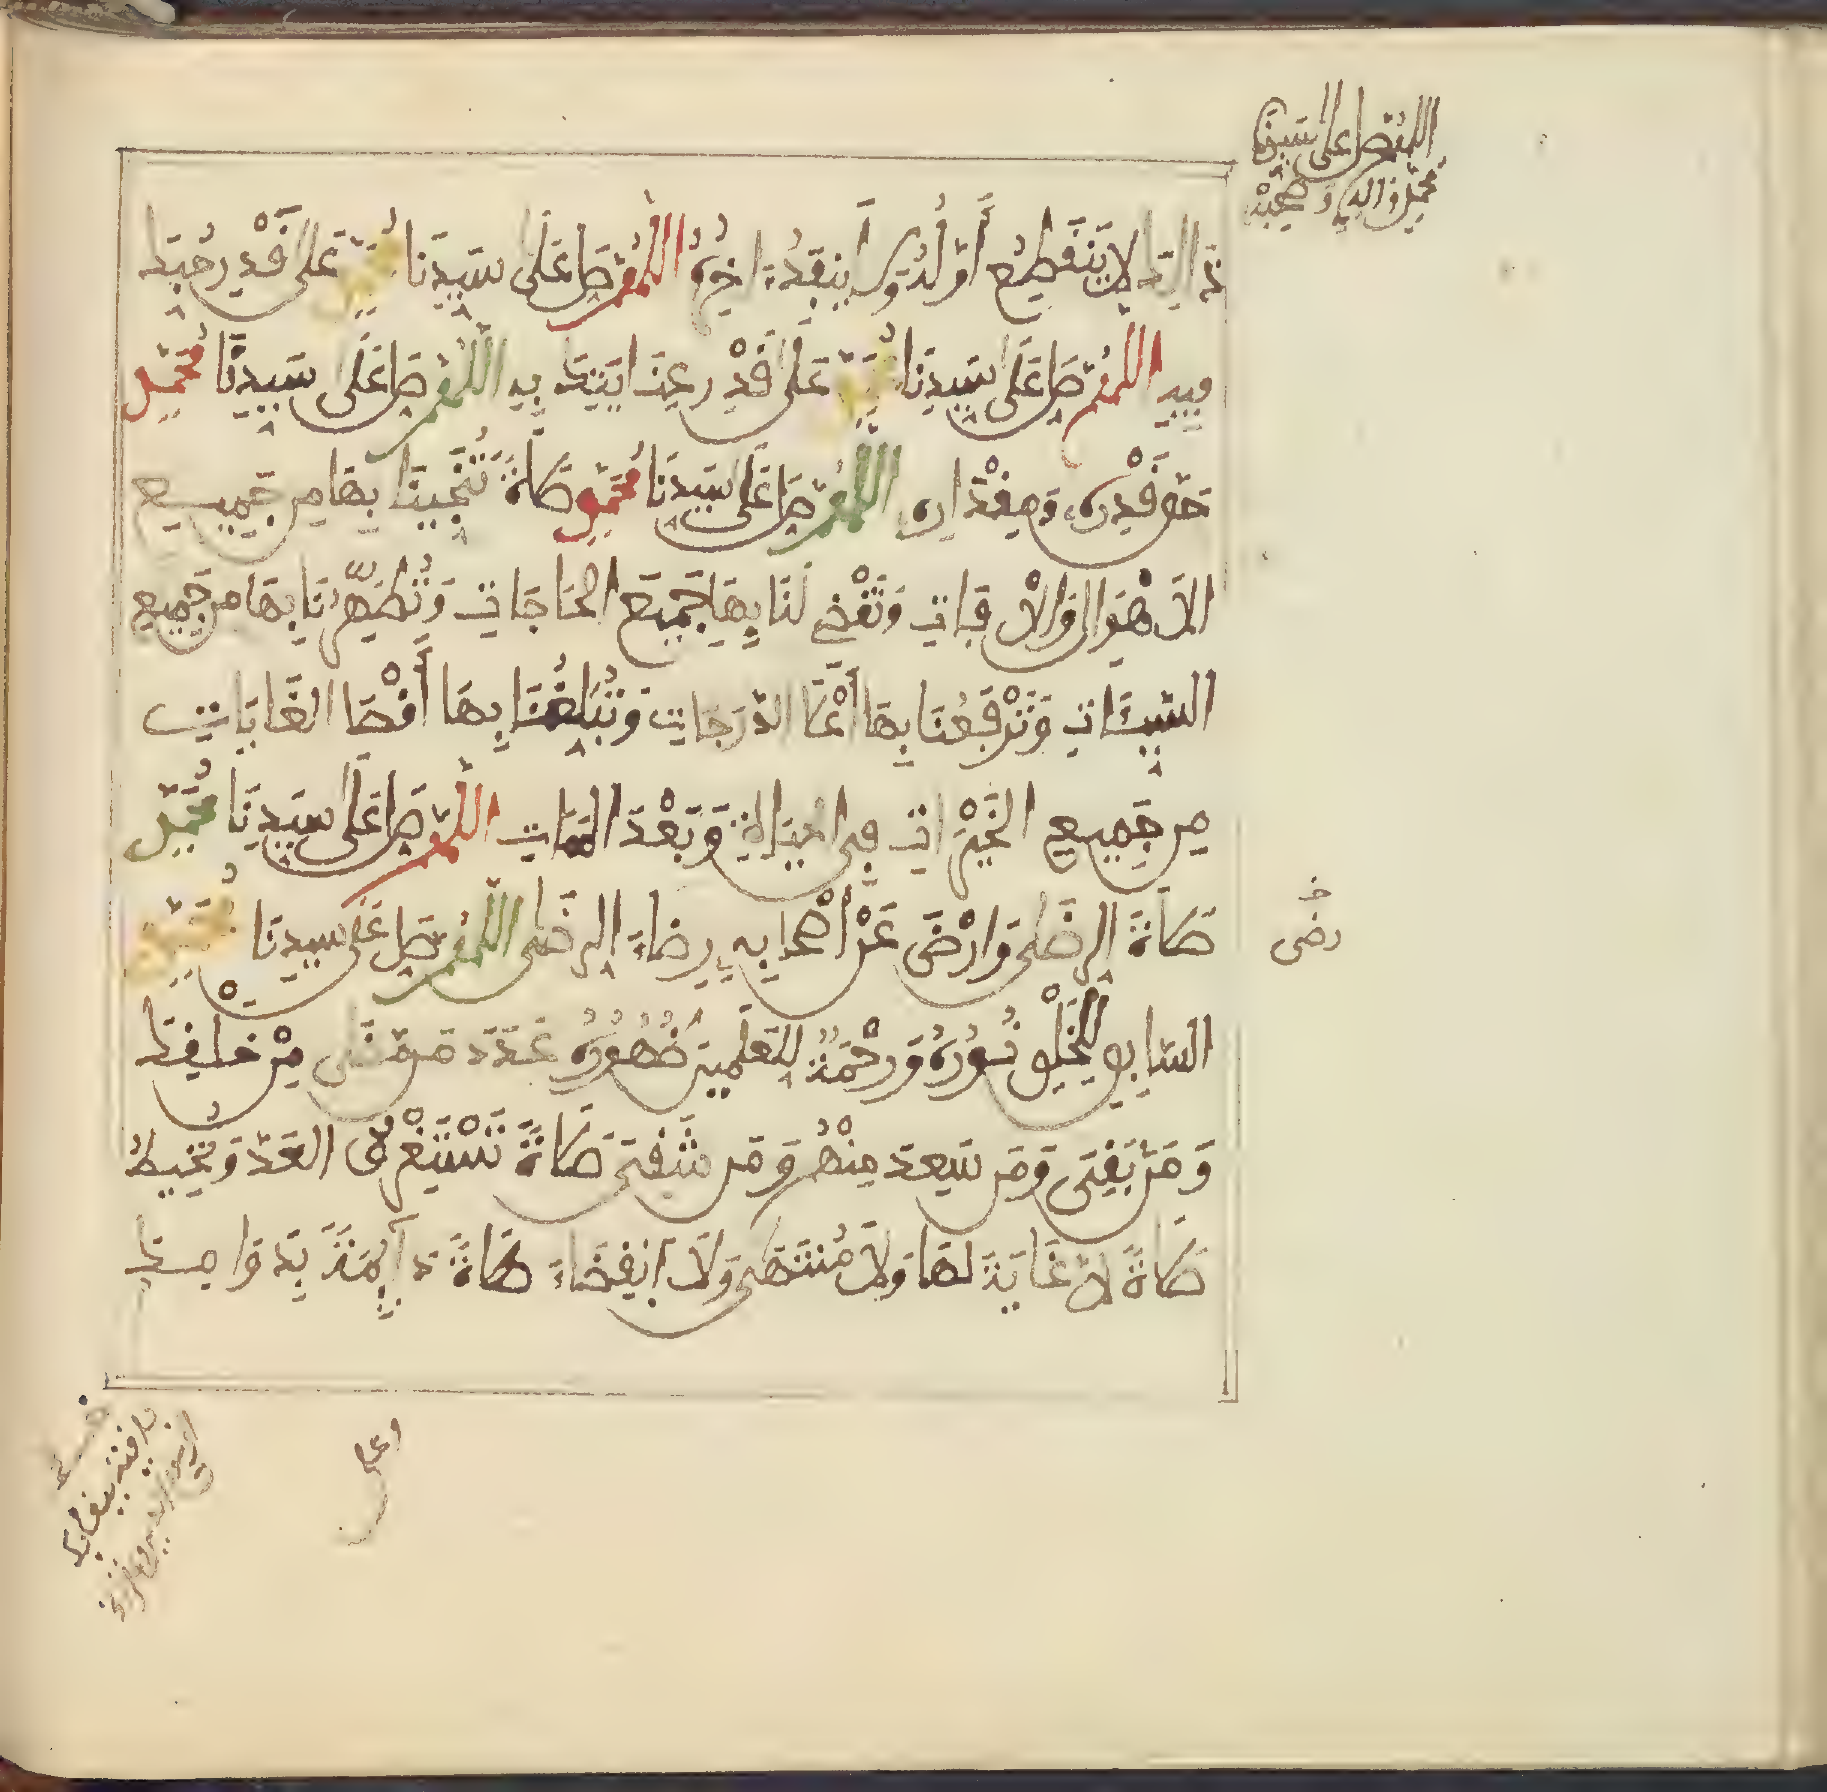 اللهم صل على سيدنا
محمد وءاله وصحبه
لا ينقطع أوله ولا ينفد ءاخره اللهم صل على سيدنا محمد على قدر حبه
فيه اللهم صل على سيدنا محمد على قدر عنايته به اللهم صل على سيدنا محمد
حق قدره ومقداره اللهم صل على سيدنا محمد صلاة تنجينا بها من جميع
الأهوال والآفات وتقضي لنا بها جميع الحاجات وتطهرنا بها من جميع
السيئات وترفعنا بها أعلا الدرجات وتبلغنا بها أقصا الغايات
من جميع الخيرات في الحياة وبعد الممات اللهم صل على سيدنا محمد
صلاة الرضى وارض عن أصحابه رضاء الرضى اللهم صل على سيدنا محمد
رضى
السابق للخلق نوره ورحمة للعلمين ظهوره عدد من مضى من خلقك
ومن بقى ومن سعد منهم ومن شقى صلاة تستغرق العد وتحيط
صلاة لا غاية لها ولا منتهى ولا انقضاء صلاة دائمة بدوامك
وعلى